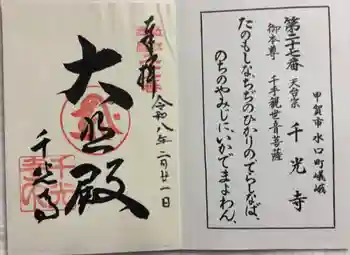 甲賀市 水口町嵯峨
第二十七番 天台宗 千光寺
御本尊 千手観世音菩薩
たのもしなちぢのひかりのてらしなば、
のちのやみじにいいでまよわん、
奉拝 令和八年二月廿一日
大悲殿
千光寺